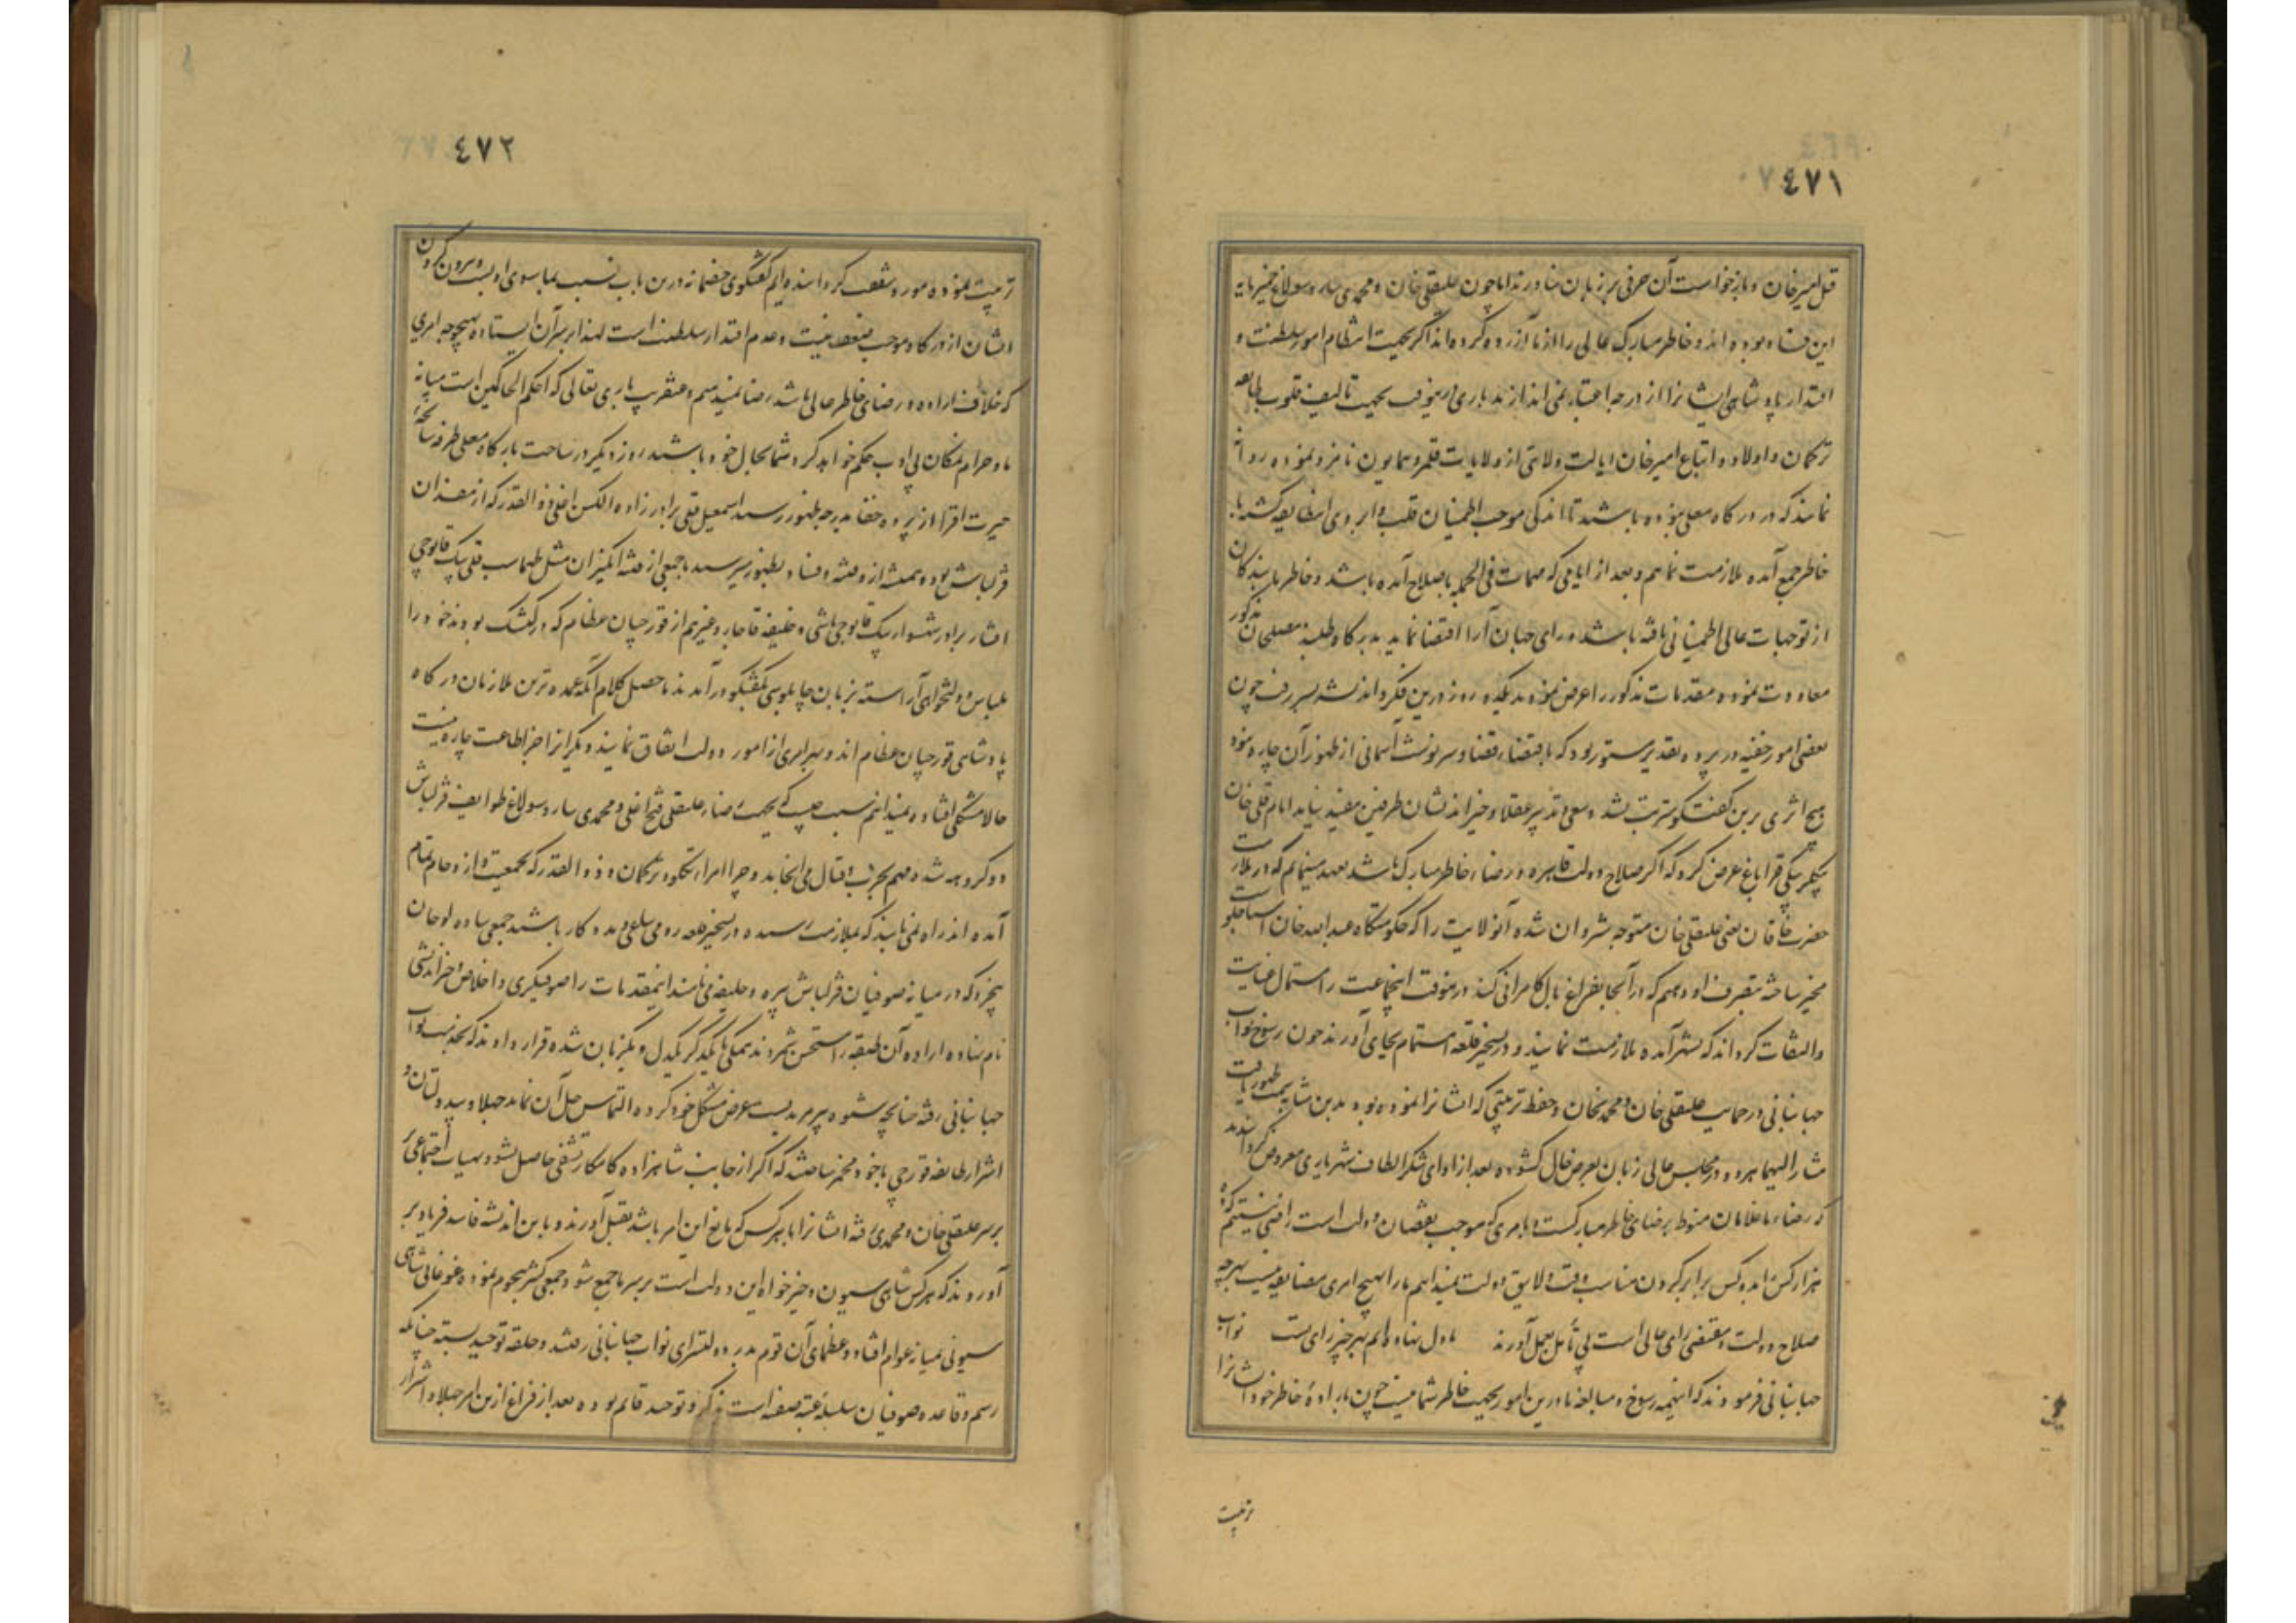 ٤٧١
قتل امیر خان و بازخواست آن حرفی بر زبان نیاورند اما چون علیقلی خان و محمدی ساروسولاغ خمیرمایه
این فساد بوده اند و خاطر مبارک عالی را از ما آزرده کرده اند اگر بجهت انتظام امور سلطنت و
اقتدار پادشاهی ایشانرا از درجه اعتبار نمی اندازند باری در بجهت تالیف قلوب طایفه
ترکمان و اولاد و اتباع امیر خان ایالت ولایتی از ولایات قلمرو همایون نامزد نموده روانه
نمایند که در درگاه معلی نبوده باشند تا اندکی موجب اطمینان قلب و آبروی این طایفه گشته با
خاطر جمع آمده ملازمت نماییم و بعد از ایامی که مهمات فی الجمله باصلاح آمده باشد و خاطر ما بندگان
از توجهات عالی اطمینانی یافته باشد و رای جهان آرا اقتضا نماید بدرگاه طلبند مصلحان مذکور
معاودت نموده مقدمات مذکور را عرض نمودند یکدو روز درین فکر و اندیشه بسر رفت چون
بعضی امور خفیه در پرده تقدیر مستور بود که باقتضاء قضا و سرنوشت آسمانی از ظهور آن چاره نبود
هیچ اثری برین گفتگو مترتب نشد و سعی و تدبیر عقلا و خیراندیشان طرفین مفید نیامد امام قلی خان
بیگلربیگی قراباغ عرض کرد که اگر صلاح دولت قاهره و رضاء خاطر مبارک باشد تعهد مینمایم که در ملازمت
حضرت خاقان یعنی علیقلی خان متوجه شروان شده آنولایت را که حکومتگاه عبدالله خان استاجلو
مخیر ساخته بتصرف او دهیم که در آنجا بفراغ بال کامرانی کند درینوقت اینجماعت را استمال عنایت
والتفات گرداند که بشهر آمده ملازمت نمایند و در تسخیر قلعه اهتمام بجای آورند چون رسوخ نواب
جهانبانی در حمایت علیقلی خان و محمد یخان و حفظ تربیتی که ایشانرا نموده بود بدین مثابه بسمت ظهور یافت
مشار الیهما هر دو در مجلس عالی زبان بعرض حال گشوده بعد از ادای شکر الطاف شهریاری معروض گردانیدند
که رضاء ما غلامان منوط برضای خاطر مبارکست و بامری که موجب نقصان دولت است راضی نیستیم که
هزار کس را بدو کس برابر کردن مناسب وقت و لایق دولت نمیدانیم ما را بهیچ امری مضایقه نیست بهرچه
صلاح دولت و مقتضی رای عالی است بی تأمل بعمل آورند ما دل نهاده ایم بهر چیز رای تست نواب
جهانبانی فرمودند که اینهمه رسوخ و مبالغه ما درین امور بجهت خاطر شما نیست چون ما باراده خاطر خود ایشانرا
تربیت
٤٧٢
تربیت نموده مورد شفقت گردانیده ایم گفتگوی خصمانه درین باب نسبت بما سوی ادبست و بیرون کردن
ایشان از درگاه موجب منقصتیت و عدم اقتدار سلطنت است لهذا بر سر آن ایستاده بهیچوجه بامری
که خلاف اراده و رضای خاطر عالی باشد رضا نمیدهیم و عنقریب باری تعالی که احکم الحاکمین است میانه
ما و حرام نمکان بی ادب حکم خواهد کرد شما بحال خود باشید روز دیگر در ساحت بارگاه معلی طرفه سانحهٔ
حیرت افزا از پرده خفا بدرجه ظهور رسید اسمعیل قلی برادرزاده الکسن اغلی ذوالقدر که از مفسدان
قزلباش بود و همیشه ازو فتنه و فساد بظهور میرسید با جمعی از فتنه انگیزان مثل طهماسب قلی بیک قاپوچی
افشار برادر شهسوار بیک قاپوچی باشی و خلیفه قاجار و غیرهم از قورچیان عظام که در کشک بودند خود را
بلباس دولتخواهی آراسته بزبان چاپلوسی بگفتگو درآمدند ماحصل کلام آنکه عمده ترین ملازمان درگاه
پادشاهی قورچیان عظام اند و بهر امری از امور دولت اتفاق نمایند دیگرانرا جز اطاعت چاره نیست
حالا مشکلی افتاده نمیدانیم سبب چیست که بجهت رضاء علیقلی فتح اغلی و محمدی ساروسولاغ طوایف قزلباش
دو گروه شده مهم بحرب و قتال می انجامد و چرا امراء تکلو و ترکمان و ذوالقدر که بجمعیت و ازدحام تمام
آمده اند راه نمی نمایند که بملازمت رسیده در تسخیر قلعه رومی سلعی مددکار باشند جمعی ساده لوحان
بیخرد که در میانه صوفیان قزلباش پیره و خلیفه می نامند اینمقدمات را صوفیگری و اخلاص و خیراندیشی
نام نهاده اراده آن طبقه را مستحسن شمردند همگی با یکدیگر یکدل و یکزبان شده قرار دادند که بخدمت نواب
جهانبانی رفته چنانچه شیوه پیر مریدیست عرض مشکل خود کرده التماس حل آن نمایند جهلا و بیدولتان و
اشرار طایفه قورچی با خود مخمر ساختند که اگر از جانب شاهزاده کامکار تشفی حاصل نشود بهیأت اجتماعی
بر سر علیقلی خان و محمدی رفته ایشانرا با هر کس که مانع این امر باشد بقتل آورند و باین اندیشه فاسد فریاد بر
آوردند که هر کس شاهی سیون و خیرخواه این دولت است بر سر ما جمع شود جمعی کثیر هجوم نموده غوغای شاهی
سیونی بمیانه عوام افتاده و عظمای آن قوم بدر دولتسرای نواب جهانبانی رفتند و حلقه توحید بسته چنانکه
رسم و قاعده صوفیان سلسله علیه صفویه است بذکر و توحید قائم بوده بعد از فراغ ازین امر جهلا و اشرار